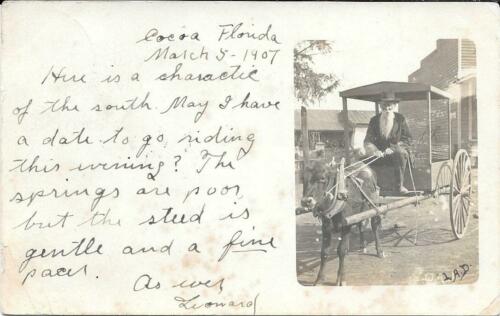 Cocoa Florida
March 5-1907
Here is a charactic
of the south. May I have
a date to go riding
this evening? The
springs are poor,
but the steed is
gentle and a fine
pacer.
As ever
Leonard
L.A.D.